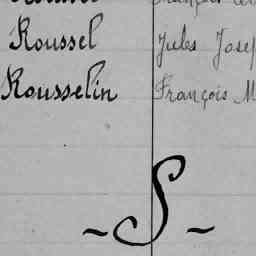 Roussel Jules Josep
Rousselin François M
~ S ~